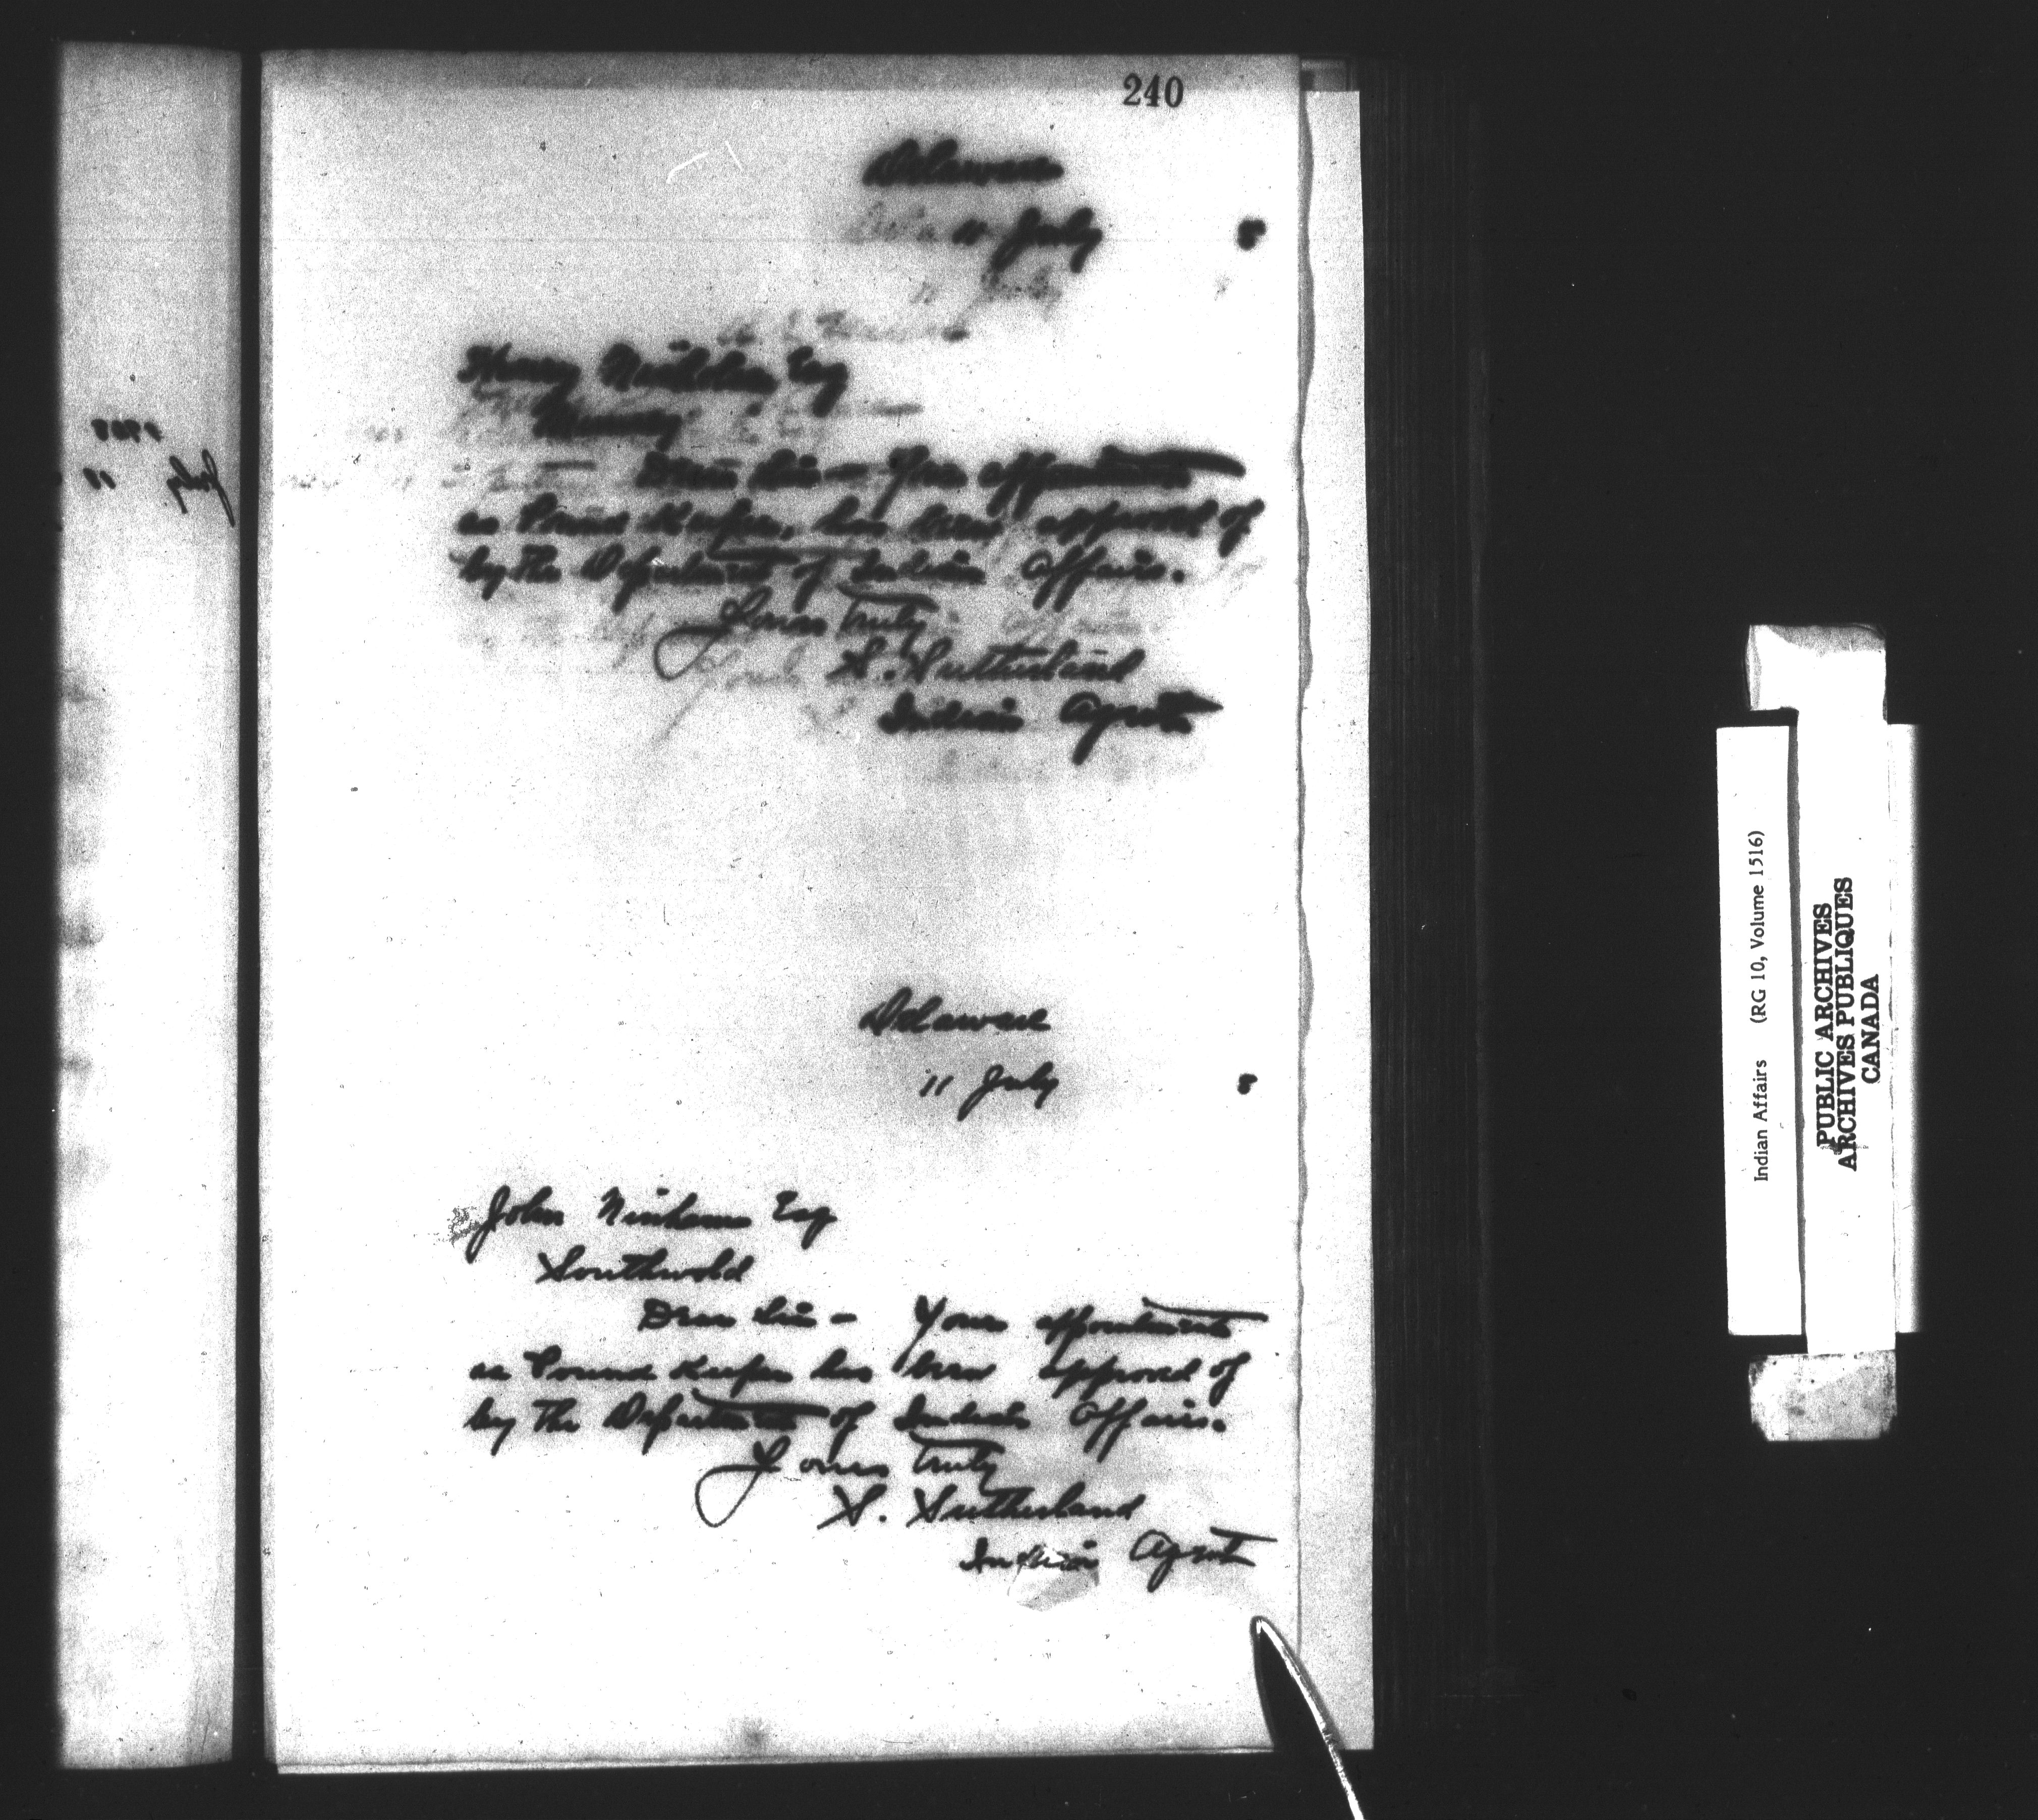 240
Delaware
11 July 8
Henry Nicholas Esq
Muncey
Dear Sir - Your appointment
as Pound Keeper, has been approved of
by the Department of Indian Affairs.
Yours Truly
S. Sutherland
Indian Agent
Delaware
11 July 8
John Ninham Esq
Southwold
Dear Sir - Your appointment
as Pound Keeper has been approved of
by the Department of Indian Affairs.
Yours Truly
S. Sutherland
Indian Agent
1908
July 11
Indian Affairs (RG 10, Volume 1516)
PUBLIC ARCHIVES
ARCHIVES PUBLIQUES
CANADA